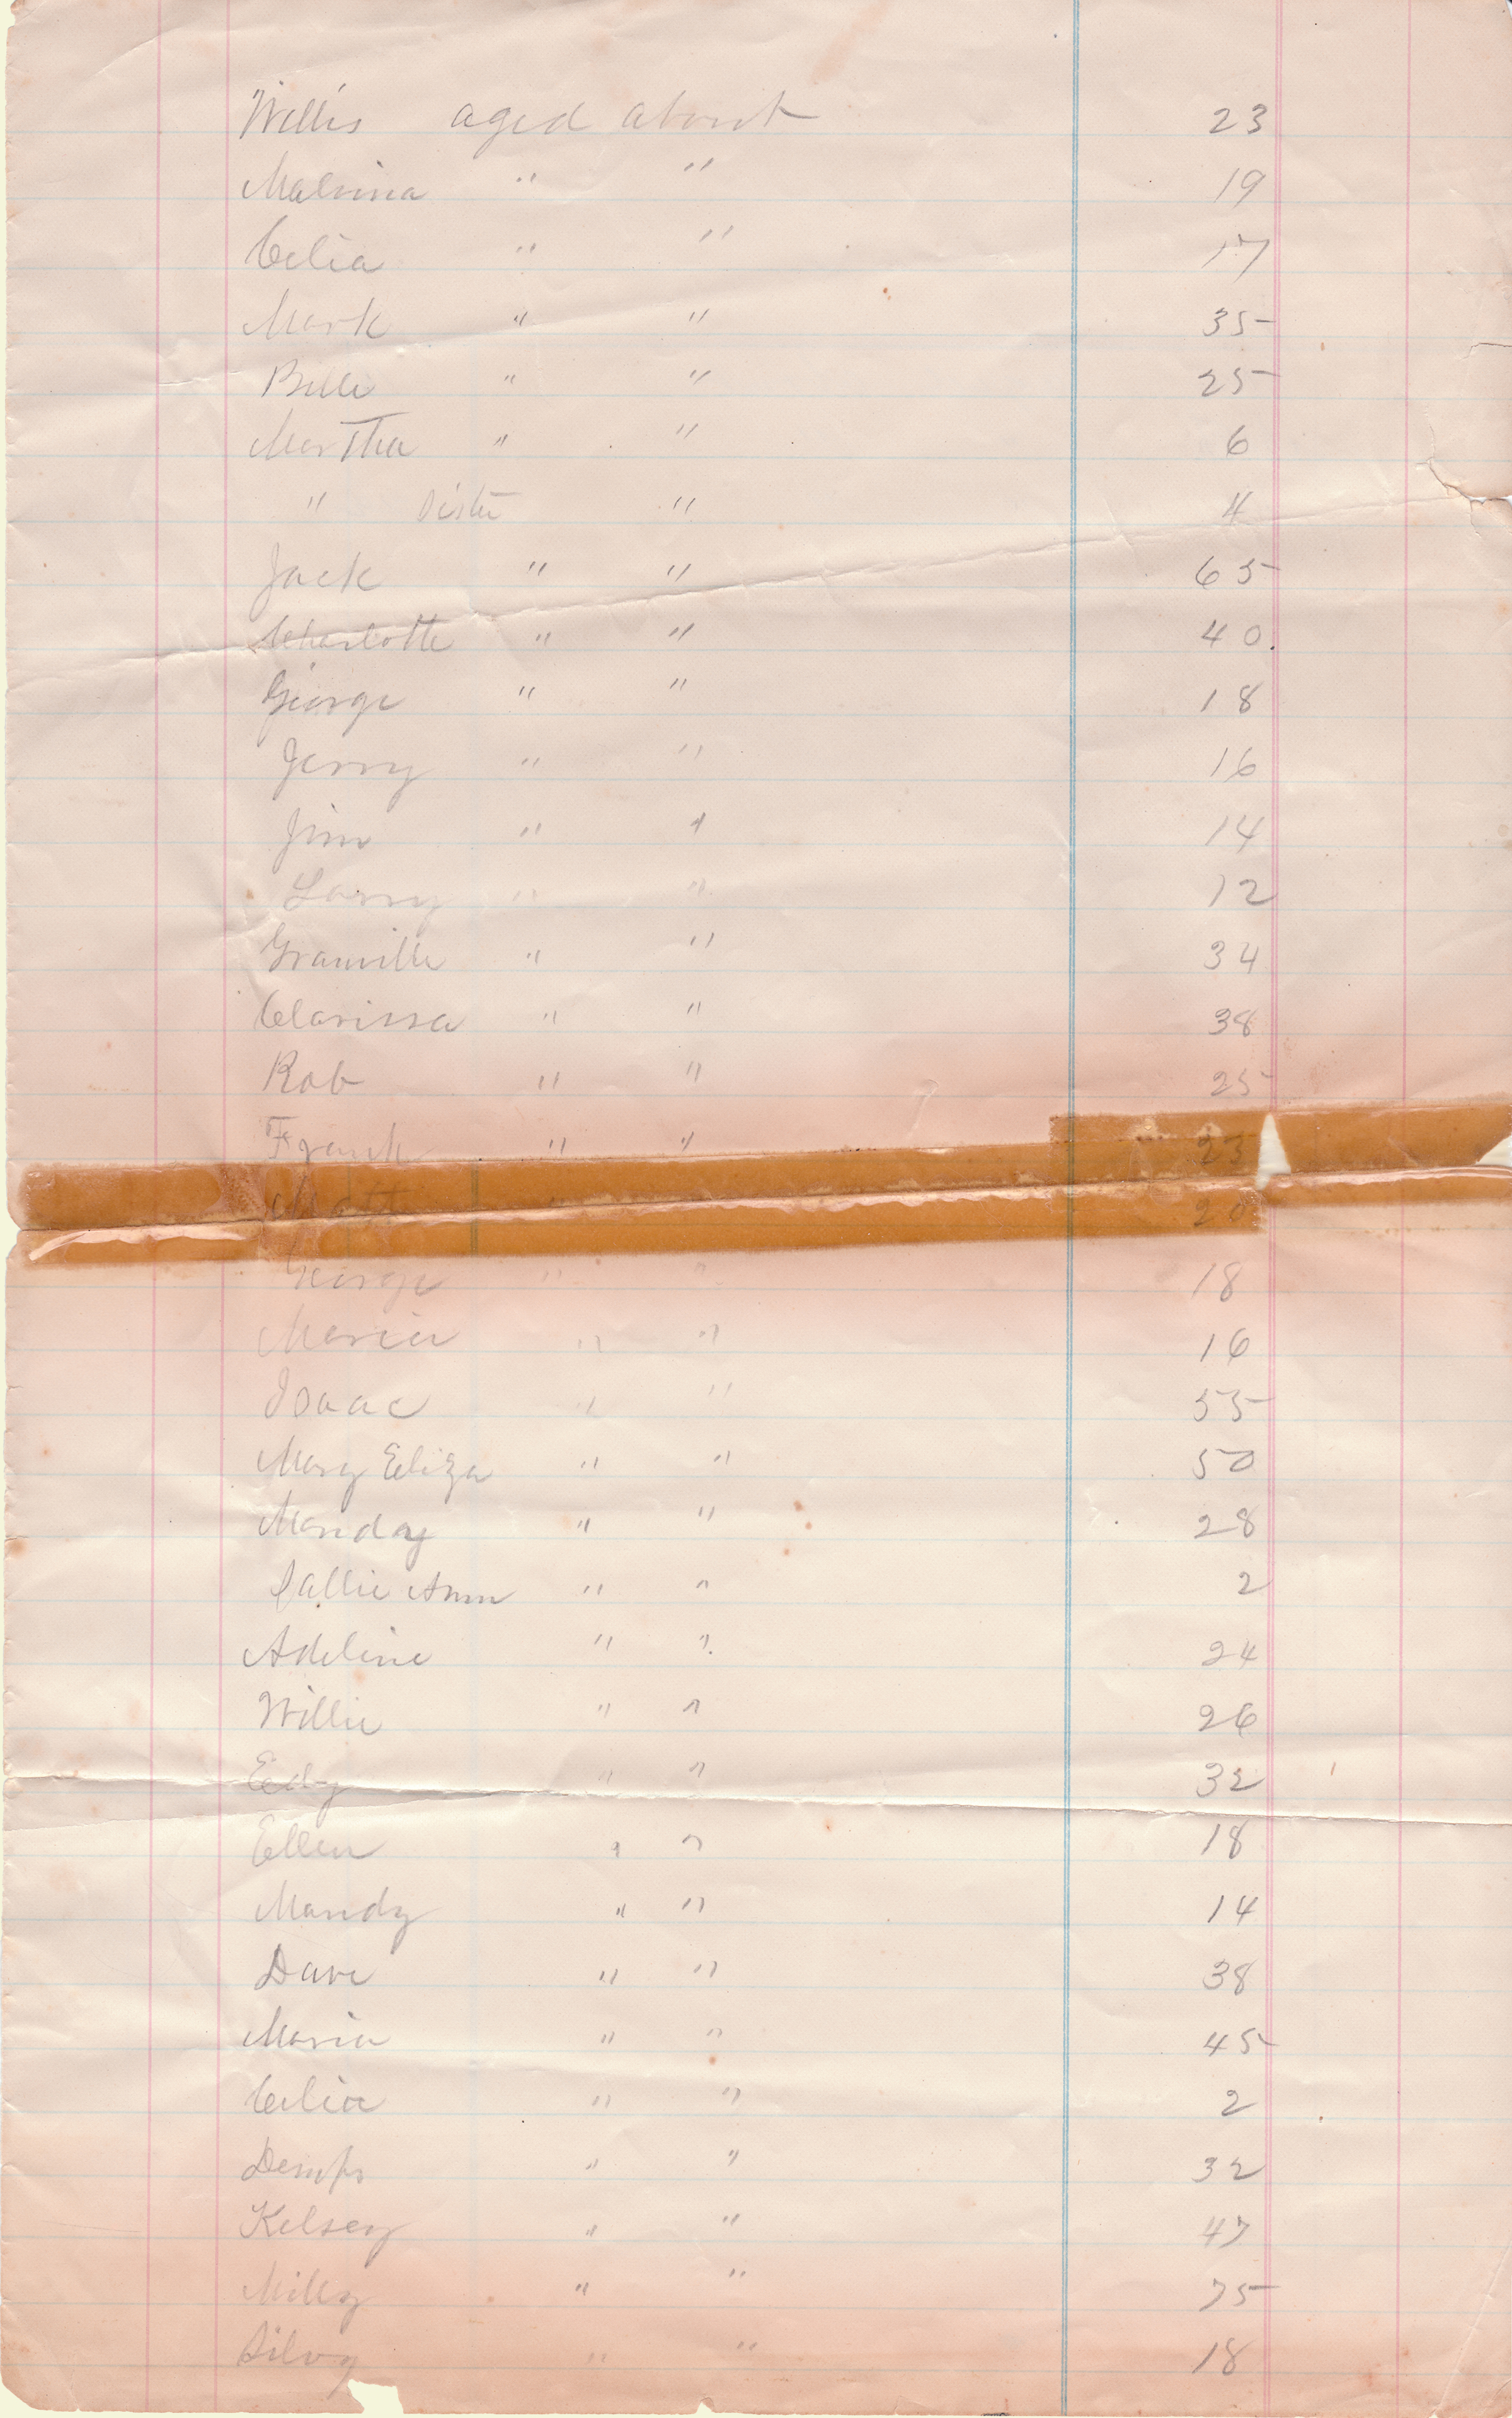 Willis aged about 23
Malvina " " 19
Celia " " 17
Mark " " 35
Belle " " 25
Martha " " 6
" Sister " 4
Jack " " 65
Charlotte " " 40.
George " " 18
Jerry " " 16
Jim " " 14
Larry " " 12
Granville " " 34
Clarissa " " 38
Rob " " 25
Frank " " 23
" 20
George " " 18
Maria " " 16
Isaac " " 55
Mary Eliza " " 50
Manday " " 28
Sallie Ann " " 2
Adeline " " 24
Willie " " 26
Edy " " 32
Ellen " " 18
Mandy " " 14
Dave " " 38
Maria " " 45
Celia " " 2
Demps " " 32
Kelsey " " 47
Milly " " 75
Silvy " " 18